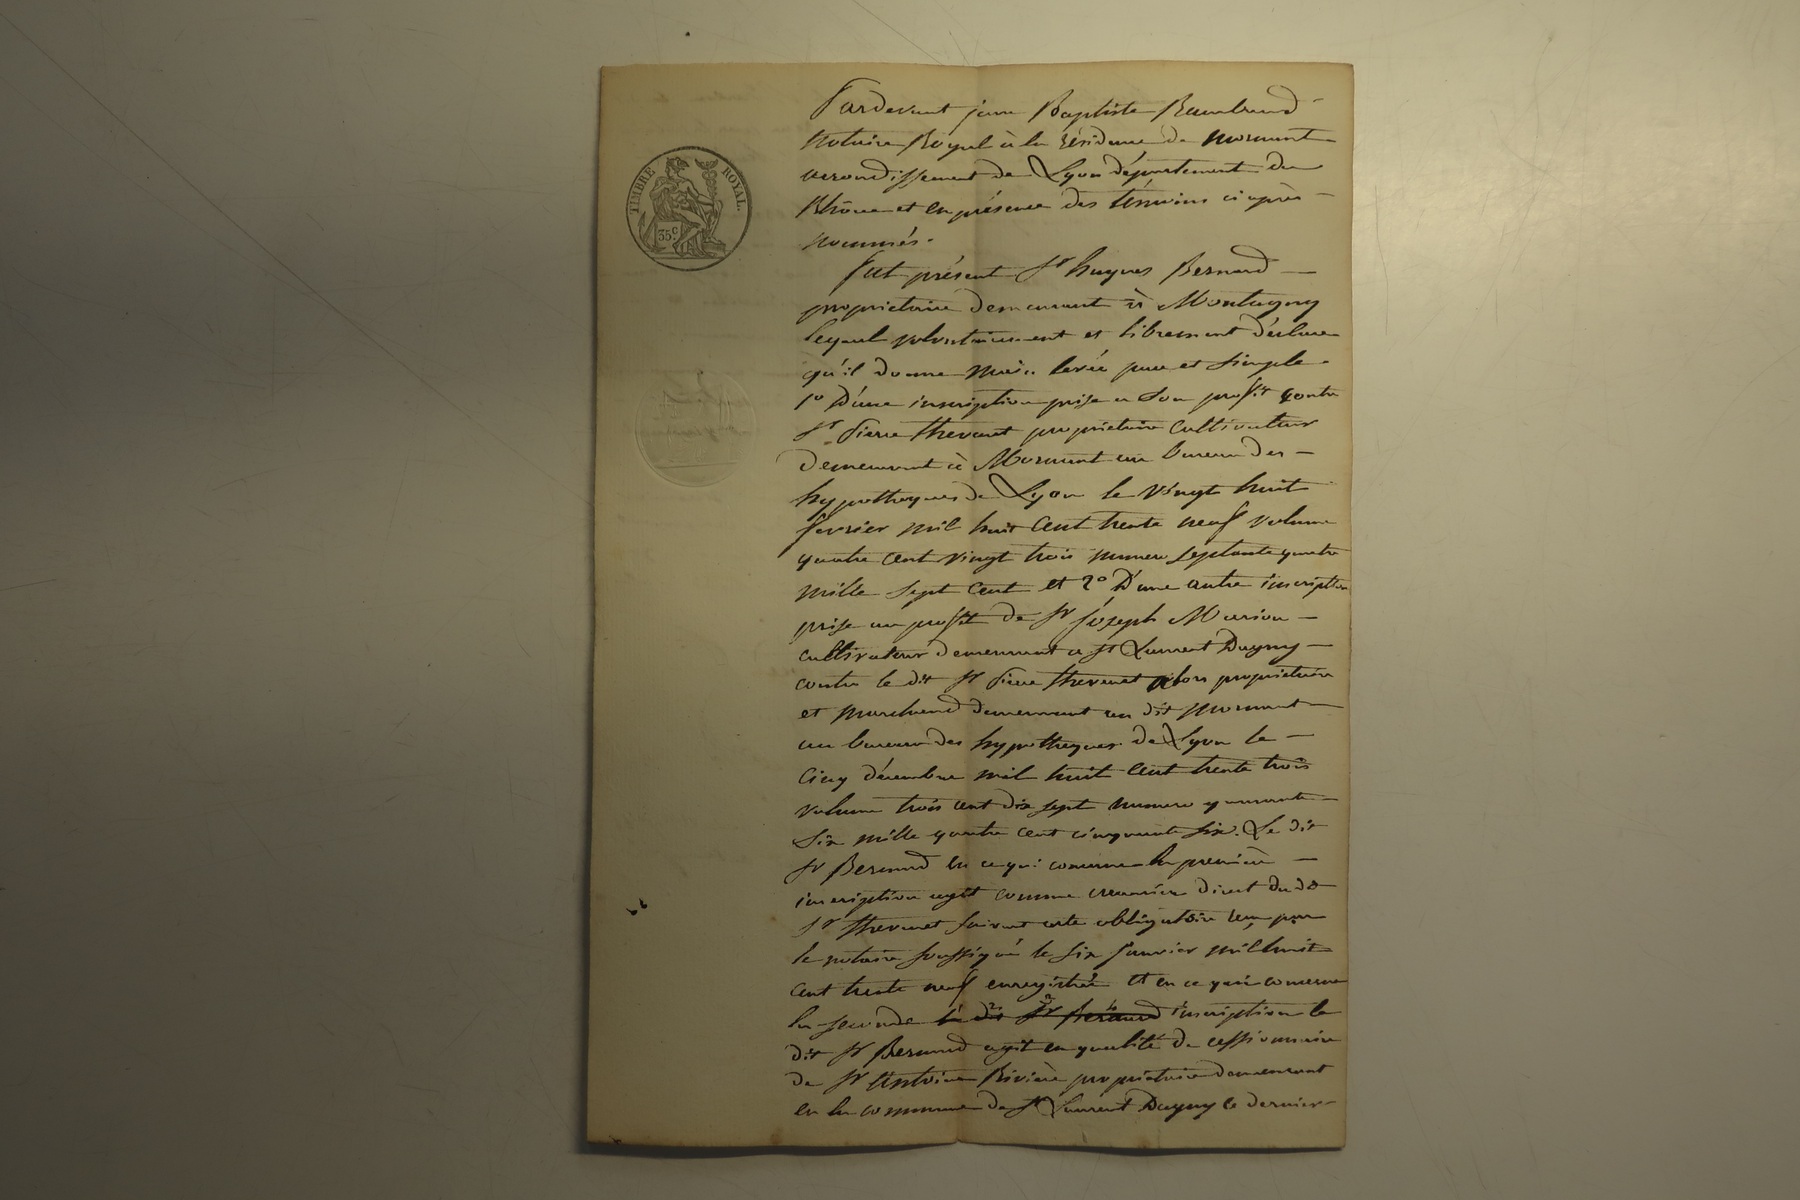 TIMBRE ROYAL.
35.c
Pardevant jean Baptiste
Notaire Royal à la résidence de Mornant
arrondissement de Lyon département du
Rhône et en présence des témoins ci après
nommés.
Fut présent Sr hugues Bernard
propriétaire demeurant à Montagny
lequel volontairement et librement déclare
qu'il donne main levée pure et simple
1o D'une inscription prise a Son profit contre
Sr Pierre thevenet propriétaire Cultivateur
demeurant à Mornant au bureau des
hypotheques de Lyon le Vingt huit
fevrier mil huit Cent trente neuf volume
quatre cent vingt trois numero septante quatre
mille sept Cent et 2o D'une autre inscription
prise au profit de Sr joseph Marion
cultivateur demeurant a St Laurent Dagny
contre le dit Sr Pierre thevenet alors propriétaire
et marchand demeurant au dit Mornant
au bureau des hypotheques de Lyon le
Cinq décembre mil huit Cent trente trois
volume trois cent dix sept numero quarante
Six mille quatre cent cinquante six. Le dit
Sr Bernard en ce qui concerne la première
inscription agit comme créancier direct du dt
Sr thevenet suivant acte obligatoire reçu par
le notaire soussigné le six janvier mil huit
cent trente neuf enregistré et en ce qui concerne
la seconde le dit Sr Bernard inscription le
dit Sr Bernard agit en qualité de cessionnaire
de Sr Antoine Rivière propriétaire demeurant
en la commune de St Laurent Dagny ce dernier